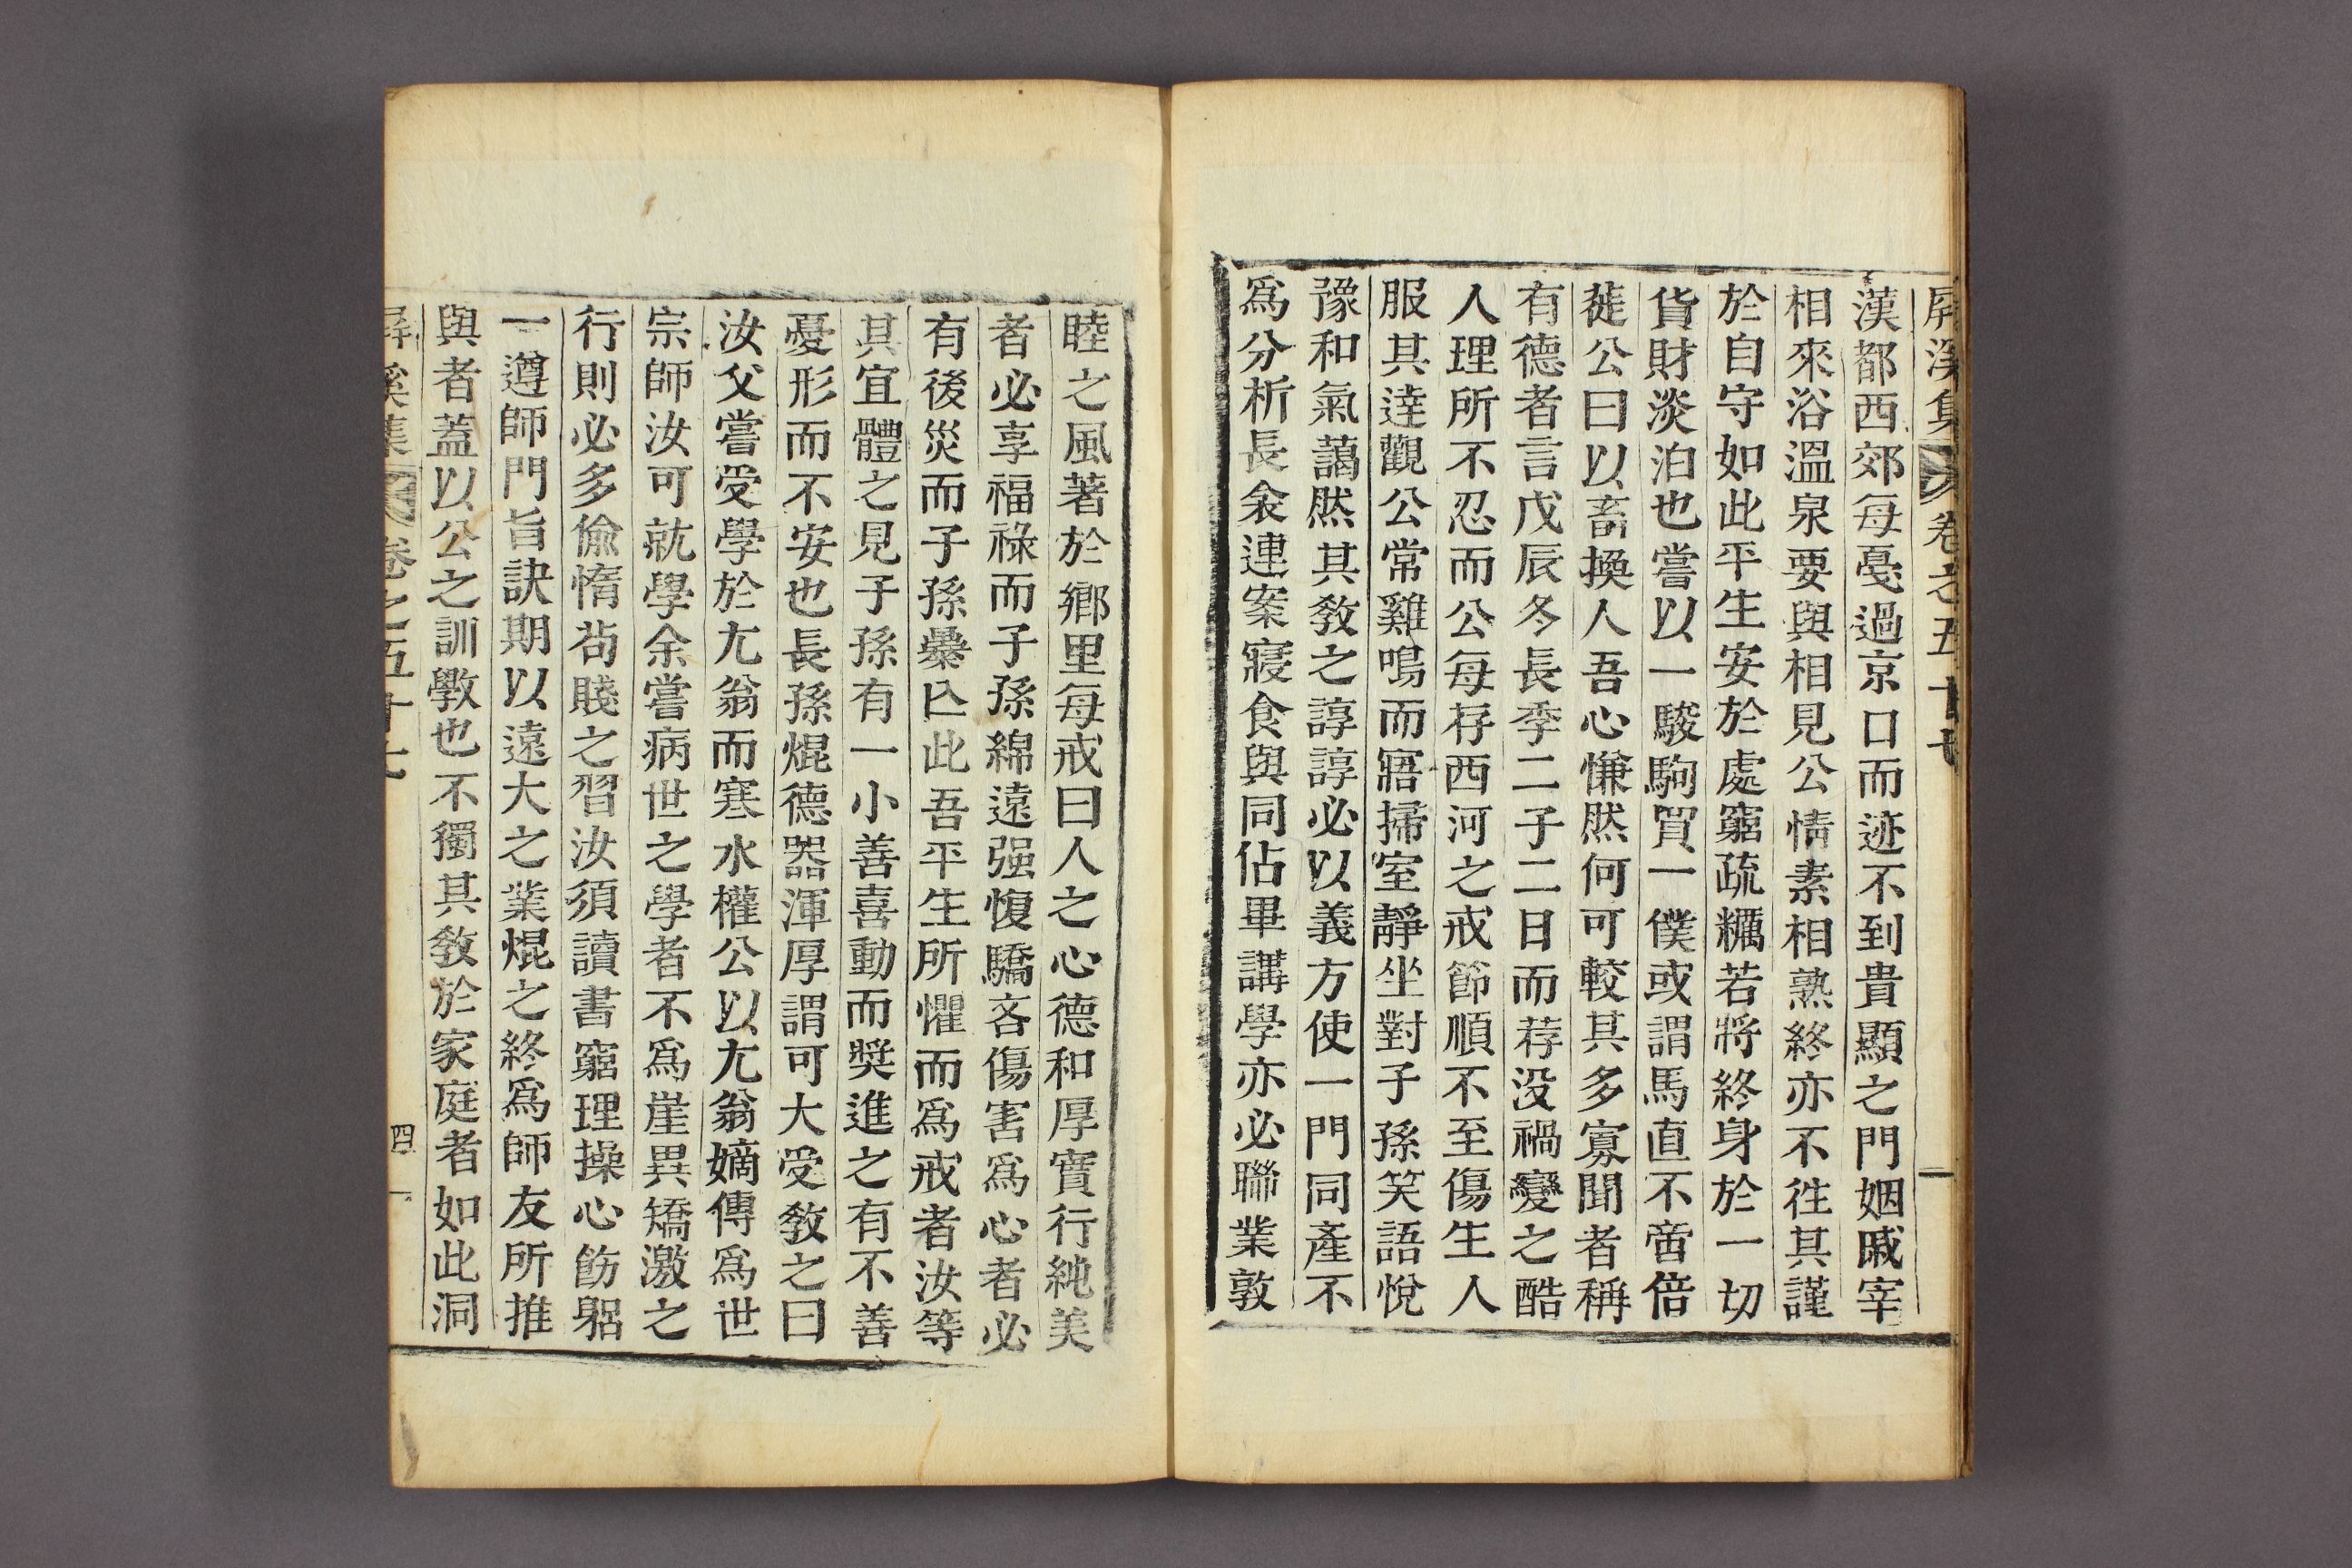 屛溪集 卷之五十七
漢都西郊每戞過京口而迹不到貴顯之門姻戚宰
相來浴溫泉要與相見公情素相熟終亦不徃其謹
於自守如此平生安於處窮疏糲若將終身於一切
貨財淡泊也嘗以一駿駒買一僕或謂馬直不啻倍
蓰公曰以畜換人吾心慊然何可較其多寡聞者稱
有德者言戊辰冬長季二子二日而荐没禍變之酷
人理所不忍而公每存西河之戒節順不至傷生人
服其達觀公常雞鳴而寤掃室靜坐對子孫笑語悅
豫和氣藹然其敎之諄諄必以義方使一門同產不
爲分析長衾連案寢食與同佔畢講學亦必聯業敦
睦之風著於鄕里每戒曰人之心德和厚實行純美
者必享福祿而子孫綿遠强愎驕吝傷害爲心者必
有後災而子孫㬥亾此吾平生所懼而爲戒者汝等
其宜體之見子孫有一小善喜動而奬進之有不善
憂形而不安也長孫焜德器渾厚謂可大受敎之曰
汝父嘗受學於尤翁而寒水權公以尤翁嫡傳爲世
宗師汝可就學余嘗病世之學者不爲崖異矯激之
行則必多偸惰苟賤之習汝須讀書窮理操心飭躬
一遵師門旨訣期以遠大之業焜之終爲師友所推
與者蓋以公之訓斆也不獨其敎於家庭者如此洞
屛溪集 卷之五十七 四